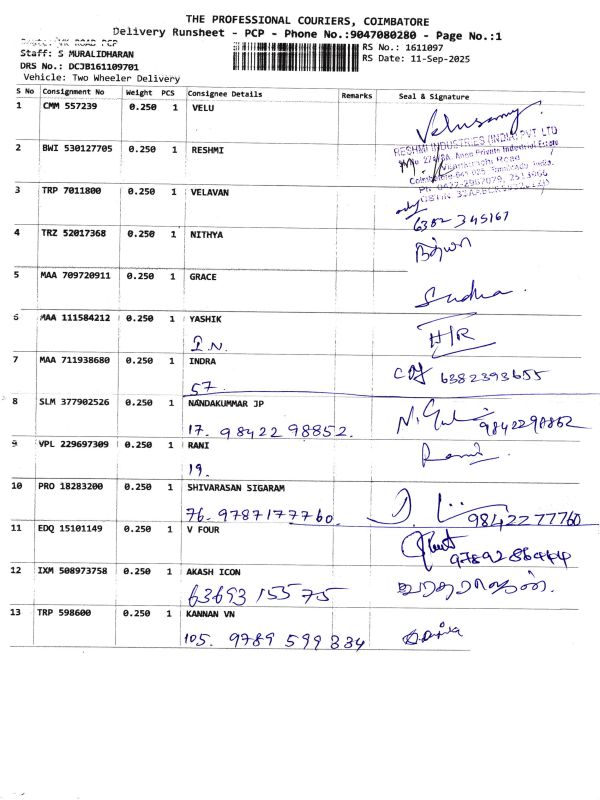 THE PROFESSIONAL COURIERS, COIMBATORE
Delivery Runsheet - PCP - Phone No.:9047080280 - Page No.:1
VK ROAD PCP
Staff: S MURALIDHARAN
RS No.: 1611097
DRS No.: DCJB161109701
RS Date: 11-Sep-2025
Vehicle: Two Wheeler Delivery
S No Consignment No Weight PCS Consignee Details Remarks Seal & Signature
1 CMM 557239 0.250 1 VELU
Velusamy
2 BWI 530127705 0.250 1 RESHMI
RESHMI INDUSTRIES (INDIA) PVT LTD
Private Industrial Estate
Road
Coimbatore-641 025. Tamilnadu, India.
3 TRP 7011800 0.250 1 VELAVAN
6382 345167
4 TRZ 52017368 0.250 1 NITHYA
5 MAA 709720911 0.250 1 GRACE
Sudha
6 MAA 111584212 0.250 1 YASHIK
I.N.
H/R
7 MAA 711938680 0.250 1 INDRA
57.
6382393655
8 SLM 377902526 0.250 1 NANDAKUMMAR JP
17. 98422 98852.
9842298852
9 VPL 229697309 0.250 1 RANI
19.
Rani
10 PRO 18283200 0.250 1 SHIVARASAN SIGARAM
76. 9787177760.
98422 77760
11 EDQ 15101149 0.250 1 V FOUR
9789286444
12 IXM 508973758 0.250 1 AKASH ICON
63693 15575
13 TRP 598600 0.250 1 KANNAN VN
105. 9789 599 334